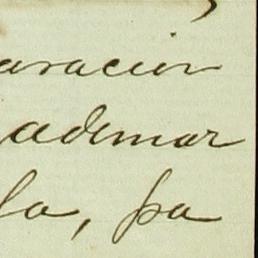 aracion
ademar
la, pa